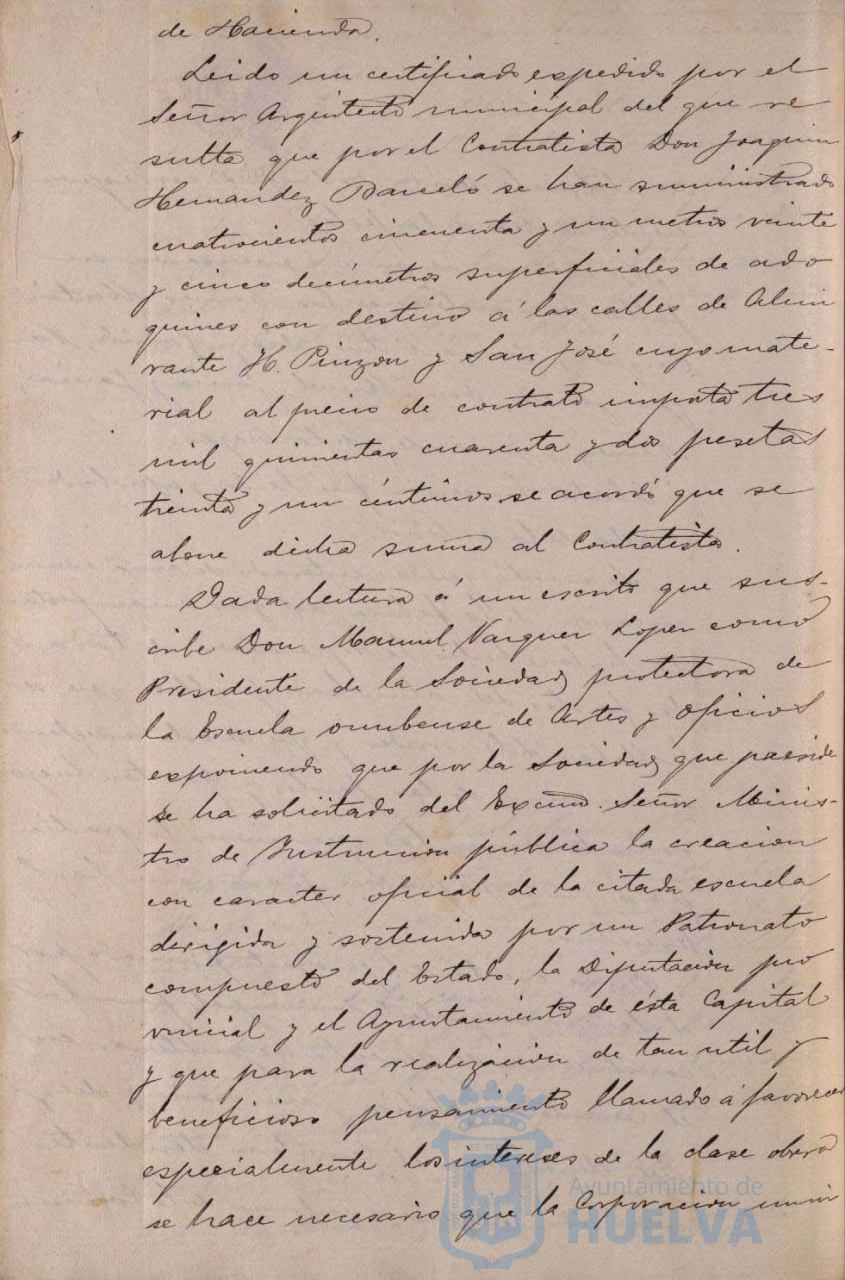 de Hacienda.
Leido un certificado expedido por el
Señor Arquitecto municipal del que re
sulta que por el Contratista Don Joaquin
Hernandez Barceló se han suministrado
cuatrocientos cincuenta y un metros veinte
y cinco decímetros superficiales de ado
quines con destino á las calles de Almi
rante H. Pinzon y San José cuyo mate-
rial al precio de contrato importa tres
mil quinientas cuarenta y dos pesetas
treinta y un céntimos se acordó que se
abone dicha suma al Contratista.
Dada lectura á un escrito que sus-
cribe Don Manuel Vazquez Lopez como
Presidente de la Sociedad protectora de
la Escuela onubense de Artes y Oficios
exponiendo que por la Sociedad que preside
se ha solicitado del Excmo. Señor Minis-
tro de Instruccion pública la creacion
con caracter oficial de la citada escuela
dirigida y sostenida por un Patronato
compuesto del Estado, la Diputacion pro
vincial y el Ayuntamiento de ésta Capital
y que para la realizacion de tan util y
beneficioso pensamiento llamado á favorecer
especialmente los intereses de la clase obrera
se hace necesario que la Corporacion muni
Ayuntamiento de
HUELVA